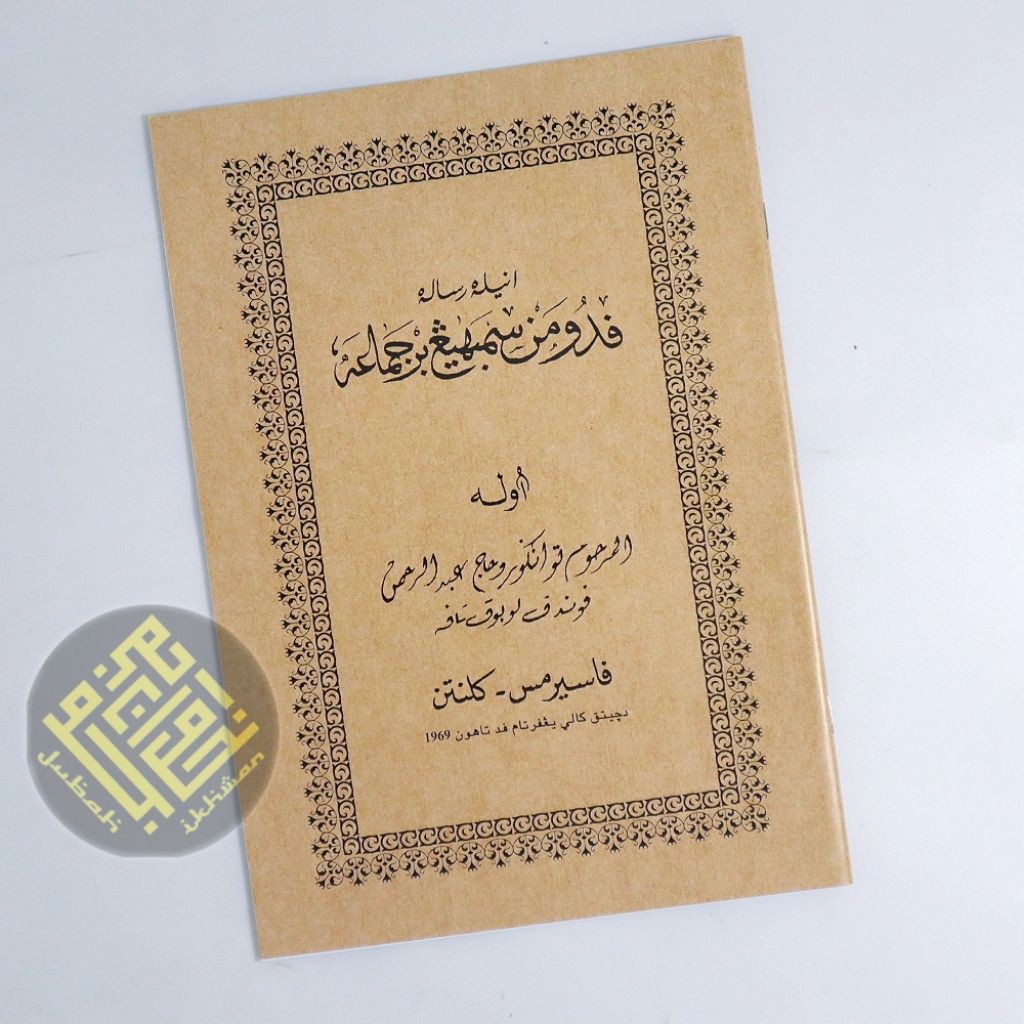 انيله رساله
ڤدومن سمبهيڠ برجماعه
اوله
المرحوم توانكورو حاج عبد الرحمن
ڤوندق لوبوق تاڤه
ڤاسيرمس - كلنتن
دچيتق كالي يڠڤرتام ڤد تاهون 1969
Jubah ikhwan